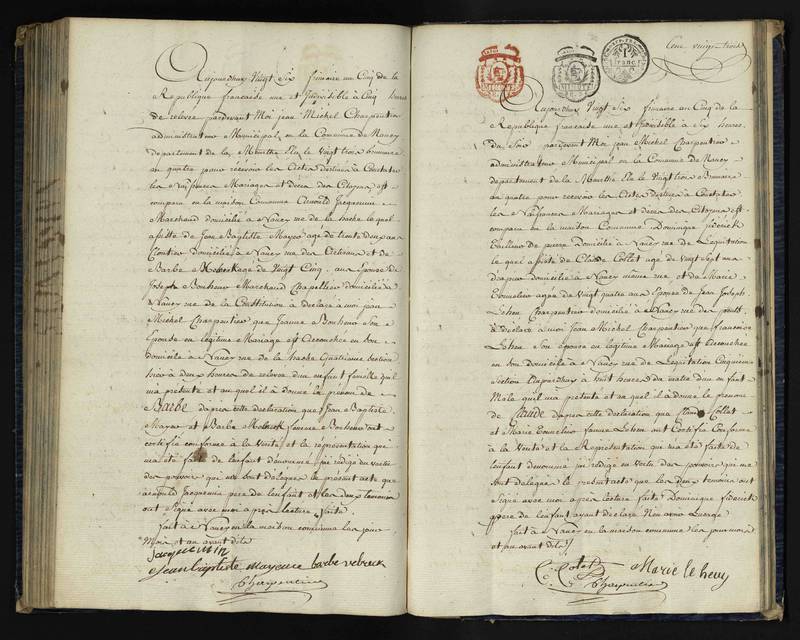 Aujourdhuy Vingt Six frimaire an Cinq de la
Republique francaise une et Indivisible à Cinq heures
de relevée pardevant Moi Jean Michel Charpentier
administrateur Municipal en la Commune de Nancy
departement de la Meurthe Elu le Vingt trois brumaire
an quatre pour recevoir les Actes destinés à Constater
les Naissances Mariages et deces des Citoyens est
comparu en la maison Commune Arnould Jacquemin
Marchand domicilié à Nancy rue de la hache lequel
assisté de Jean Baptiste Mayer agé de trente deux ans
Cloutier domicilié à Nancy rue des Artisans et de
Barbe agé de Vingt Cinq ans Epouse de
Joseph Bonheur Marchand Chapellier domiciliée à
Nancy rue de la Constitution a déclaré à moi jean
Michel Charpentier que Jeanne Bonheur Son
Epouse en legitime Mariage est Accouchée en son
domicile à Nancy rue de la hache Quatrieme Section
hier à deux heures de relevée d'un enfant femelle quil
ma présenté et au quel il à donné le prénom de
Barbe dapres cette déclaration que Jean Baptiste
Mayer et Barbe femme Bonheur ont
certifié conforme à la Verité et la représentation qui
ma été faite de lenfant dénommé jai rédigé en vertu
des pouvoirs qui me sont délégués le présent acte que
arnould Jacquemin pere de lenfant et les deux temoins
ont Signé avec moi après lecture faite
fait à Nancy en la maison commune les jour
Mois et an avant dits
Jacquemin
Jean baptiste mayeure barbe nebreck
Charpentier
Cent vingt trois
1 franc
Aujourdhuy Vingt Six frimaire an Cinq de la
Republique francaise une et Indivisible à Six heures
du Soir pardevant Moi jean Michel Charpentier
administrateur Municipal en la Commune de Nancy
departement de la Meurthe Elu le Vingt trois Brumaire
an quatre pour recevoir les Actes destinés à Constater
les Naissances Mariages et deces des Citoyens est
comparu en la maison Commune Dominique
Tailleur de pierre domicilié à Nancy rue de
le quel assisté de Claude Collot agé de Vingt Sept ans
Drapier domicilié à Nancy même rue et de Marie
agée de Vingt quatre ans Epouse de Jean Joseph
Charpentier domicilié à Nancy rue des ponts
à déclaré à moi Jean Michel Charpentier que francoise
Son Epouse en legitime Mariage est accouchée
en son domicile à Nancy rue de Cinquieme
Section Aujourdhuy à huit heures du matin d'un enfant
Male quil ma présenté et au quel il à donné le prénom
de Claude dapres cette déclaration que Collot
et Marie femme ont Certifié Conforme
à la Verité et la Représentation qui ma été faite de
lenfant dénommé jai rédigé en vertu des pouvoirs qui me
sont délégués le présent acte que les deux temoins ont
Signé avec moi après lecture faite Dominique
pere de lenfant ayant déclaré Non
fait à Nancy en la maison commune les jour mois
et an avant dits
C. Colot Marie
Charpentier